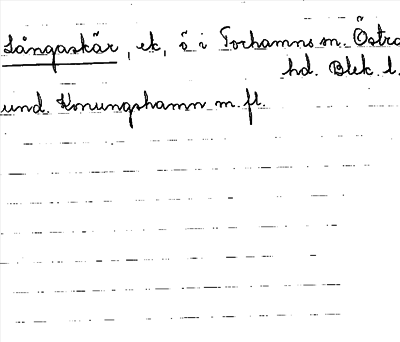 Långaskär, ek, ö i Torhamns sn. Östra
hd. Blek. l.
und. Konungshamn m. fl.